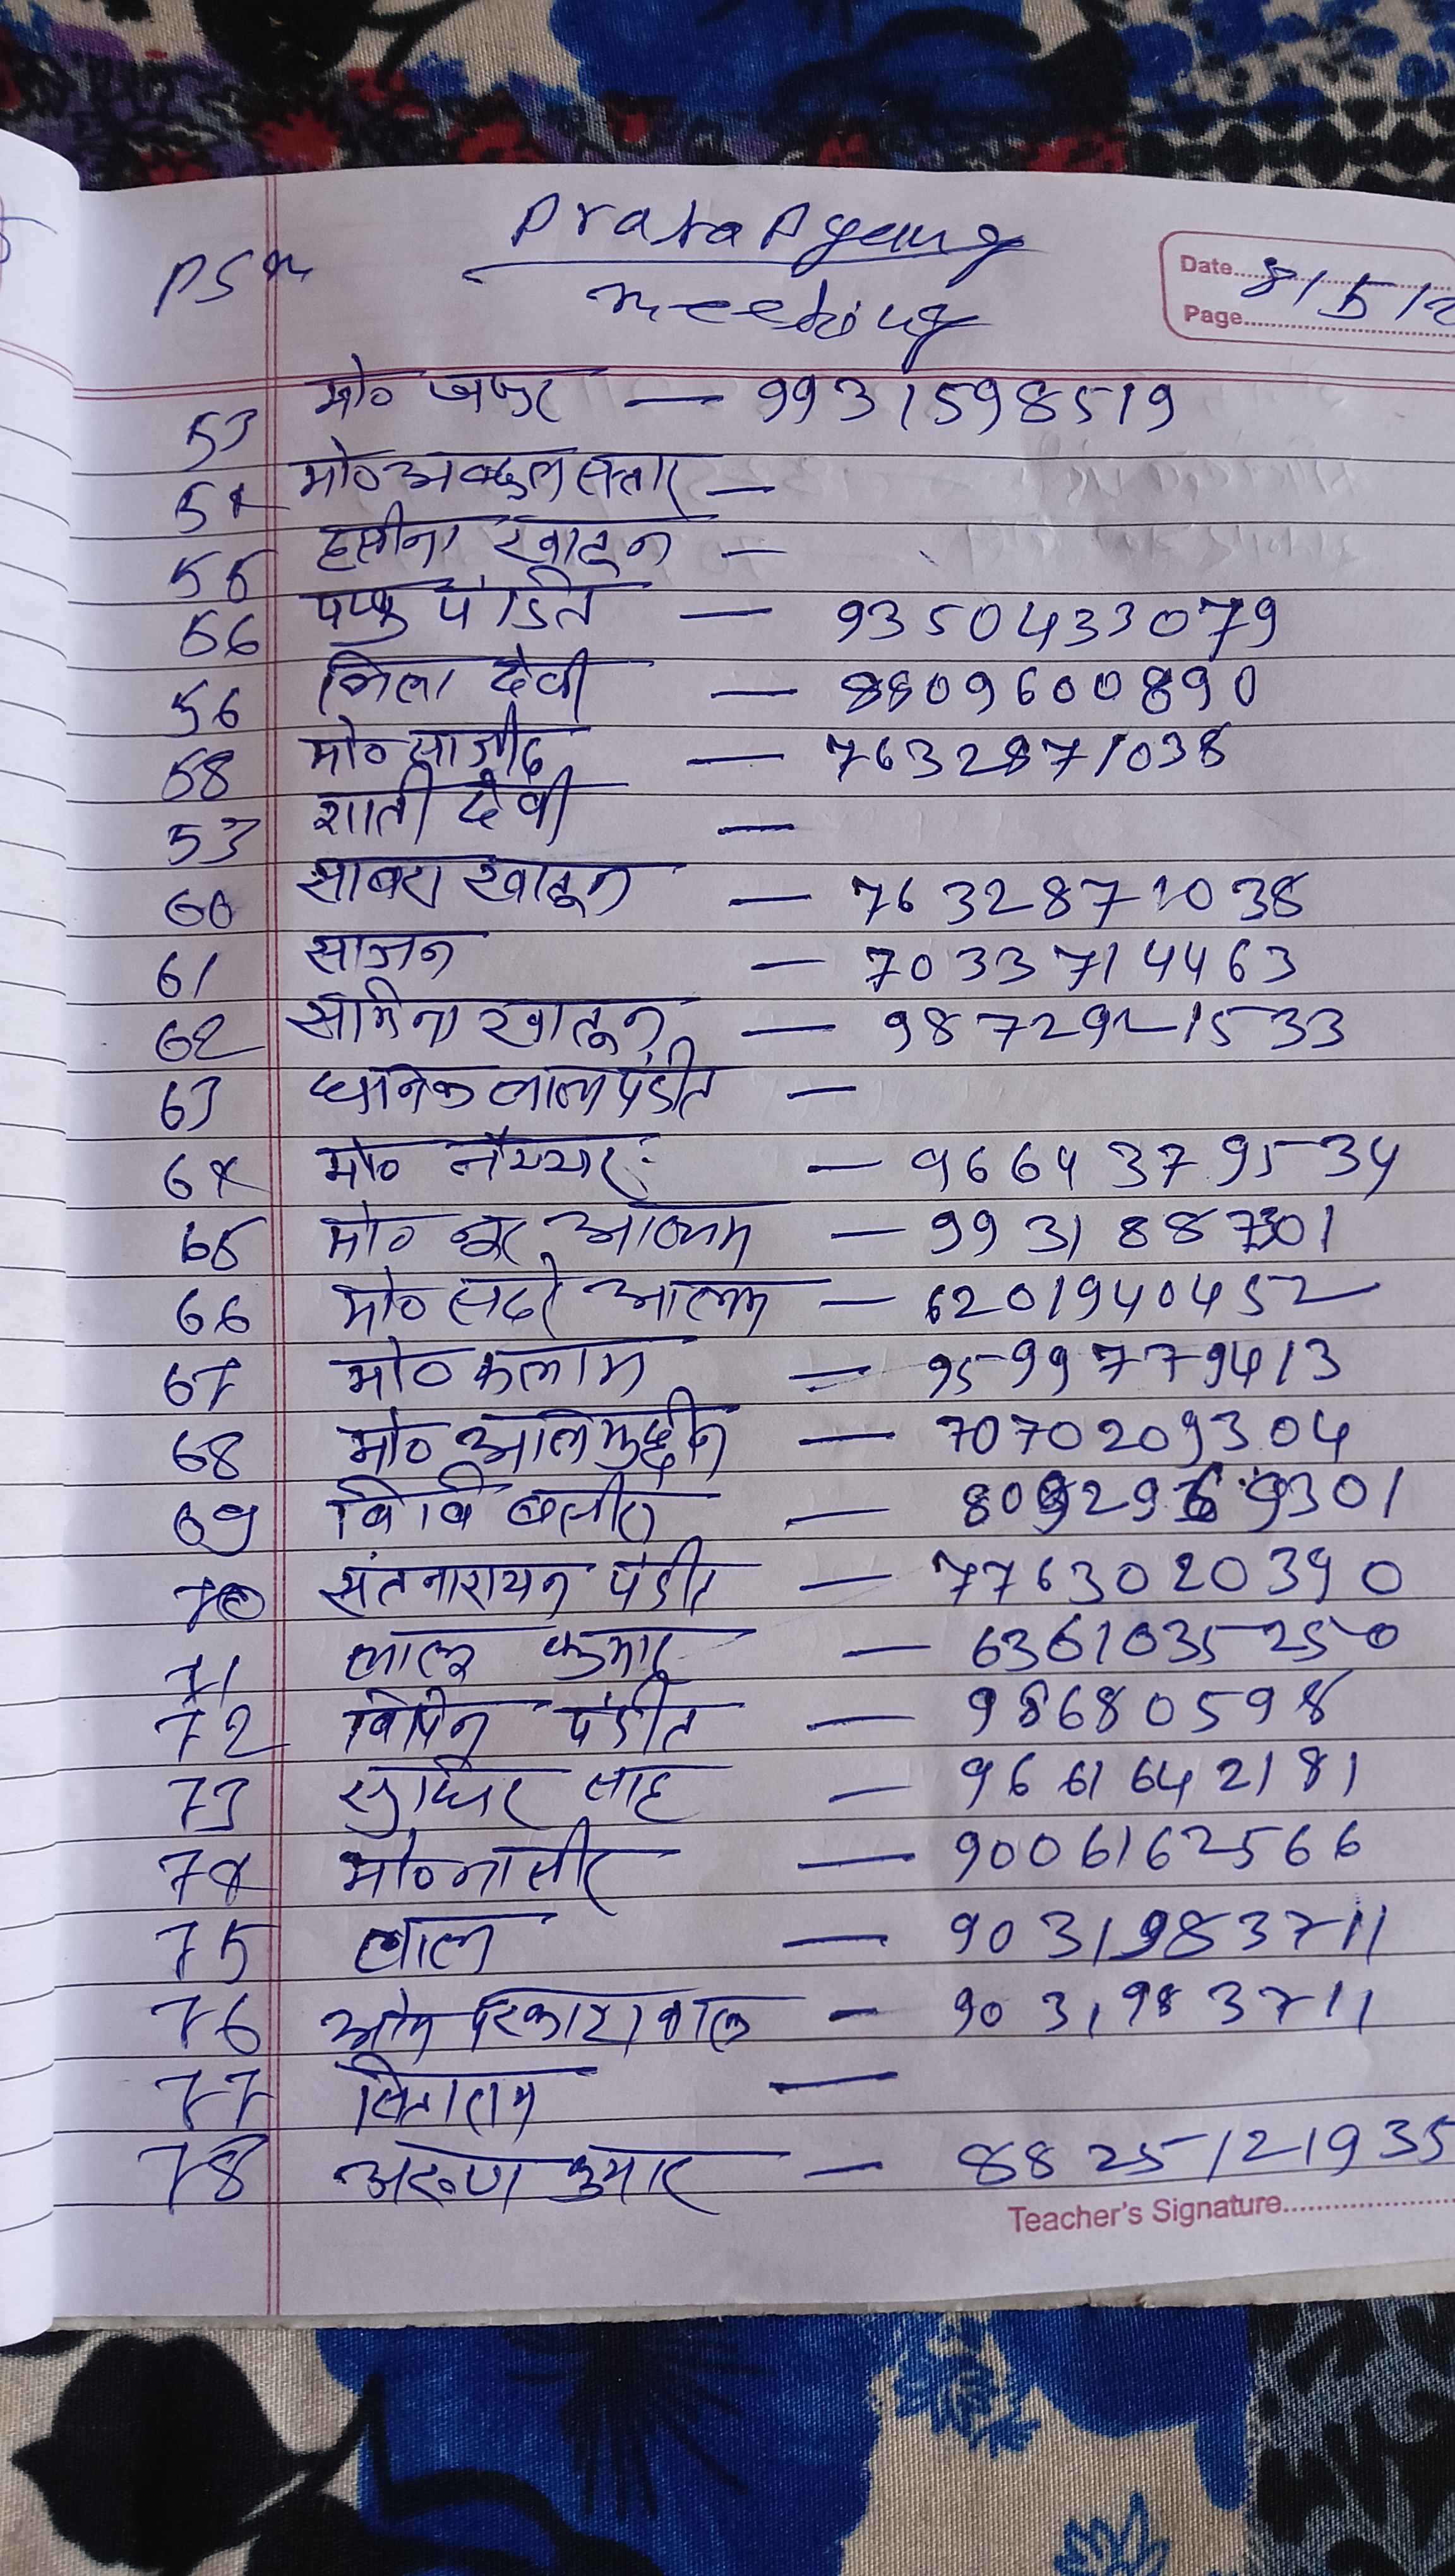 PratapgaungMeeting
Date.....8/5/2
Page.....
53 मो० जफर — 9931598519
54 मो० अब्दुल सत्तार —
55 हसीना खातून —
56 पप्पु पंडित — 9350433079
56 निला देवी — 8609600890
58 मो० साजीद — 7632871038
53 शाती देवी —
60 साबरा खातून — 7632871038
61 साजन — 7033714463
62 सामिना खातून — 9872921533
63 धानिक लाल पंडीत —
64 मो० नैय्यर — 9664379534
65 मो० नूर आलम — 9931887301
66 मो० सदरे आलम — 6201940452
67 मो० कलाम — 9599779413
68 मो० आलिमुद्दीन — 7070209304
69 बिबि
70 संतनारायन पंडीत — 7763020390
71 लालू कुमार — 6361035250
72 विपिन पंडीत — 98680598
73 सुधिर साह — 9661642181
74 मो० नासीर — 9006162566
75 लाल — 9031983711
76 ओम — 9031983711
77 —
78 अरुण कुमार — 8825121935
Teacher's Signature.....